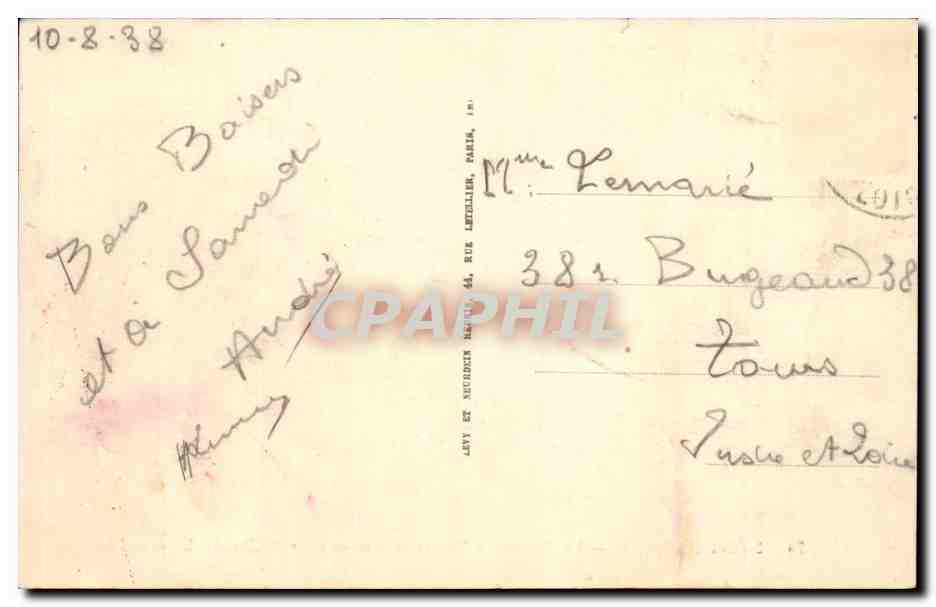 10-8-38
Bons Baisers
et à Samedi
André
LEVY ET NEURDEIN REUNIS, 44, RUE LETELLIER, PARIS, IMP.
Mme Lemarié
38 r Bugeaud 38
Tours
Indre et Loire
CPAPHIL